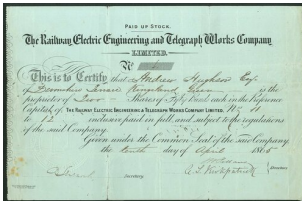 PAID UP STOCK.
The Railway Electric Engineering and Telegraph Works Company
LIMITED.
No
This is to Certify that Andrew Hughson Esq.
of Terrace Kingsland Green is the
proprietor of Two Shares of Fifty Pounds each in the Preference
Capital of THE RAILWAY ELECTRIC ENGINEERING & TELEGRAPH WORKS COMPANY LIMITED. No
to 12 inclusive paid in full and subject to the regulations
of the said Company.
Given under the Common Seal of the said Company
the tenth day of April
Kirkpatrick
Directors
Secretary